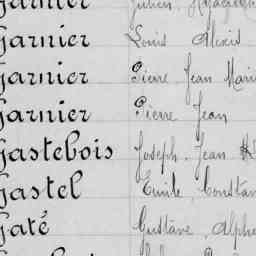 Garnier Julien
Garnier Louis Alexis
Garnier Pierre Jean Mari
Garnier Pierre Jean
Gastebois Joseph Jean
Gastel Emile Constan
Gaté Gustave Alph